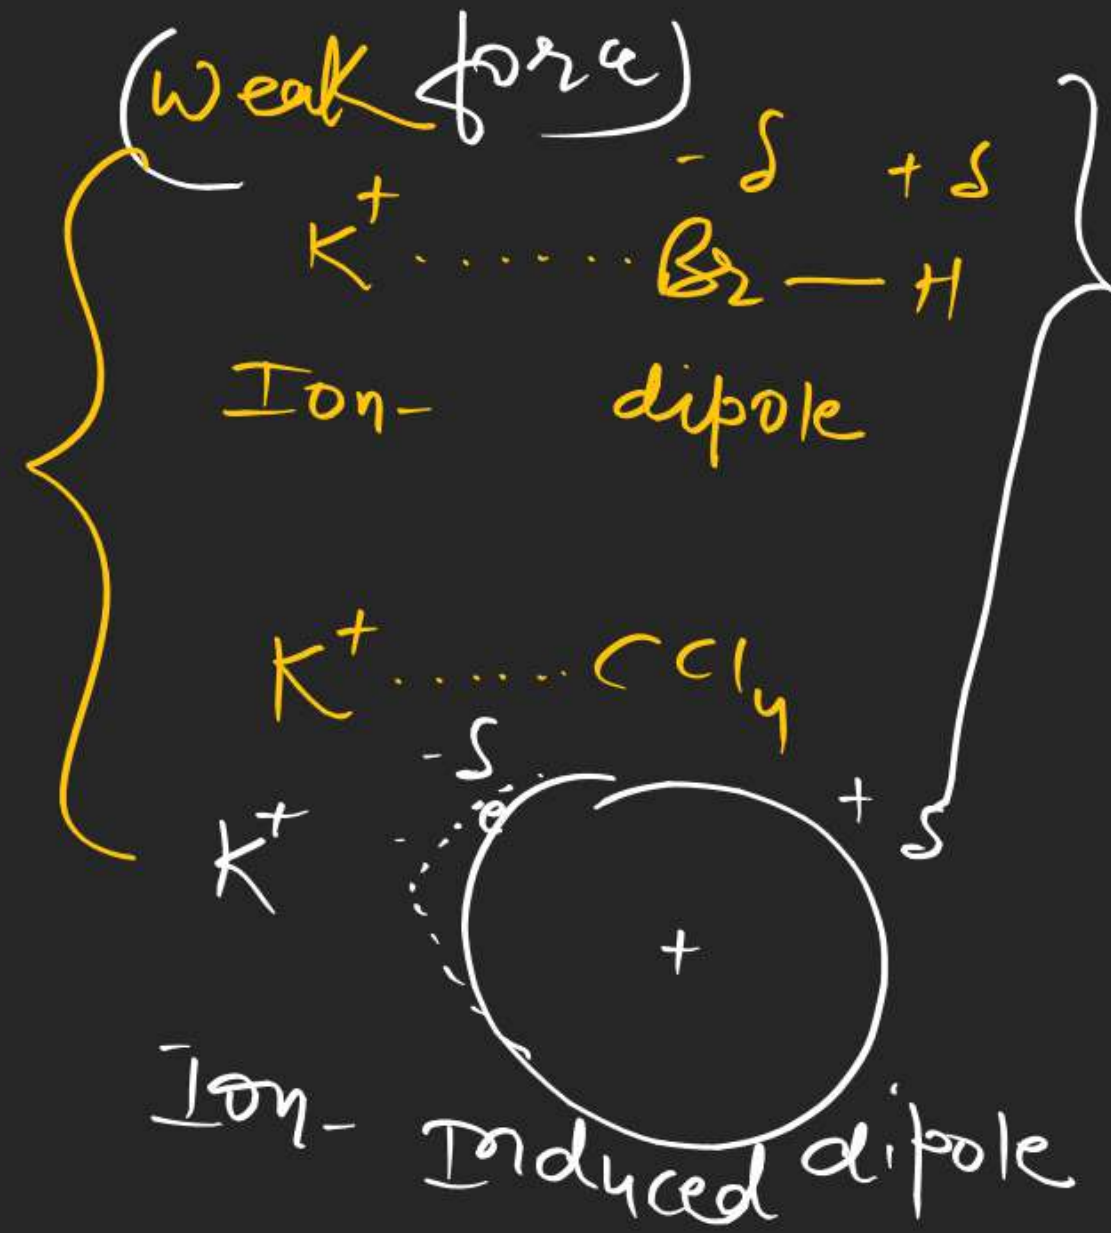 (Weak force)
-δ +δ
K⁺ ....... Br — H
Ion- dipole
K⁺ ....... CCl₄
-δ
+ δ
K⁺ - e
+
Ion- Induced dipole